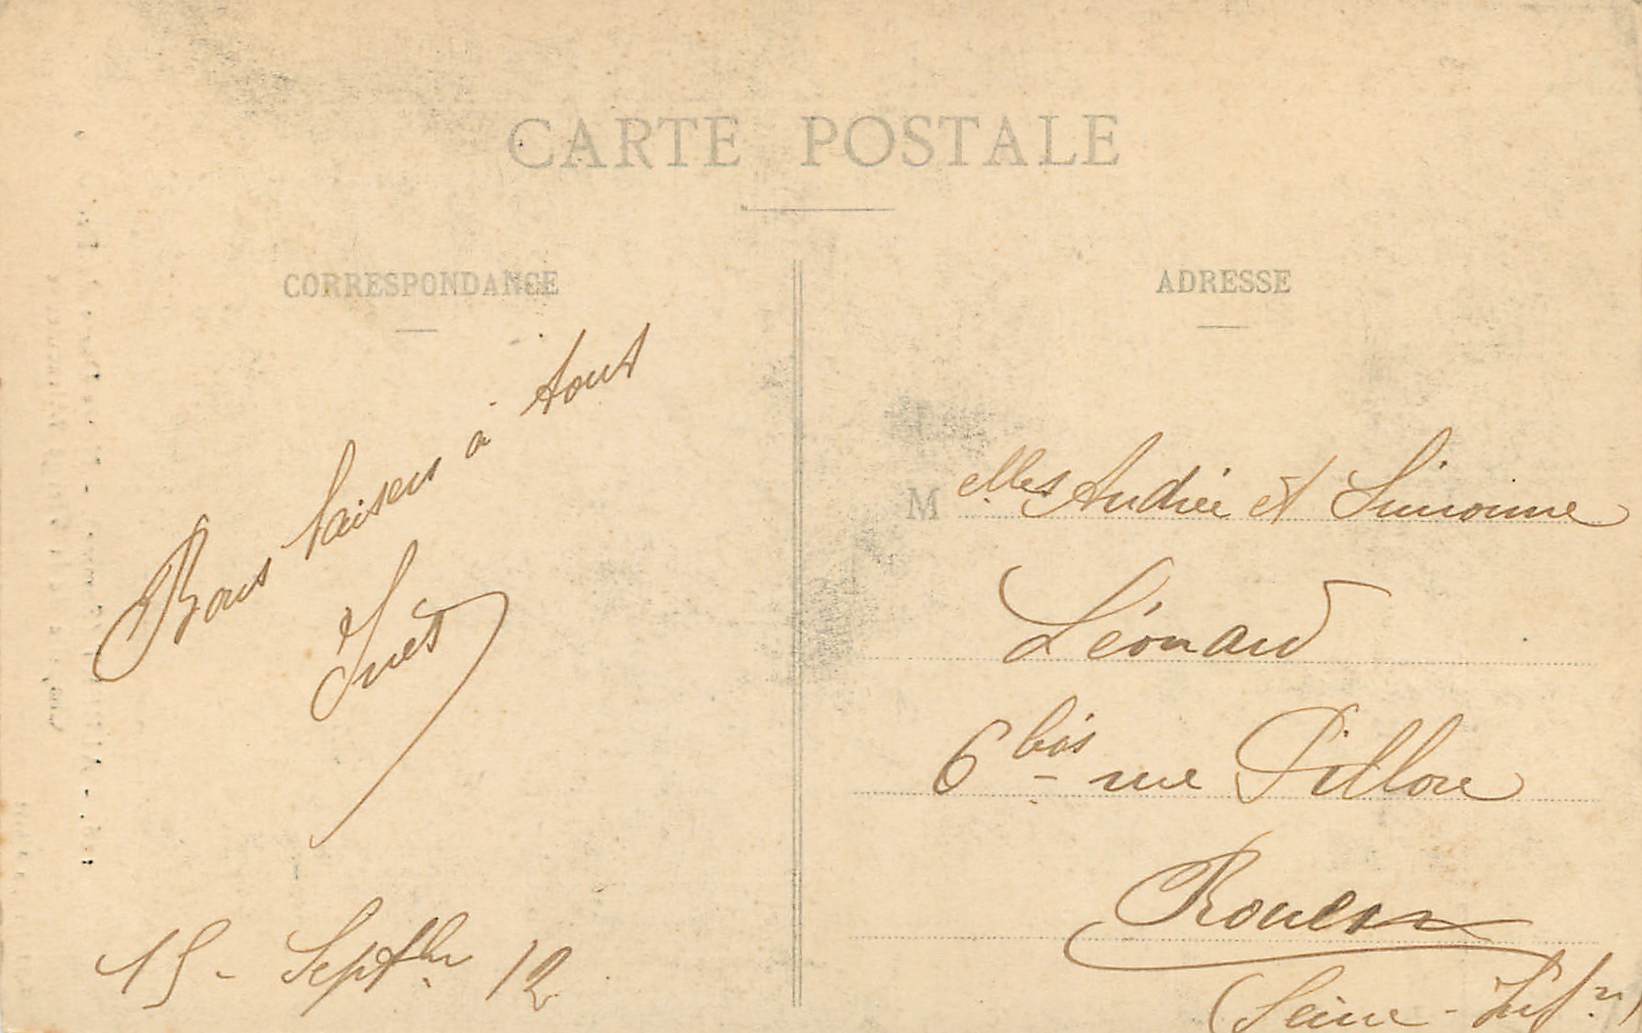 CARTE POSTALE
CORRESPONDANCE
Bons baisers à tout
Inès
15 - Septbre 12
ADRESSE
Melles Andrée et Simonne
Léonard
6 bis rue Pillore
Rouen
(Seine-Infre)